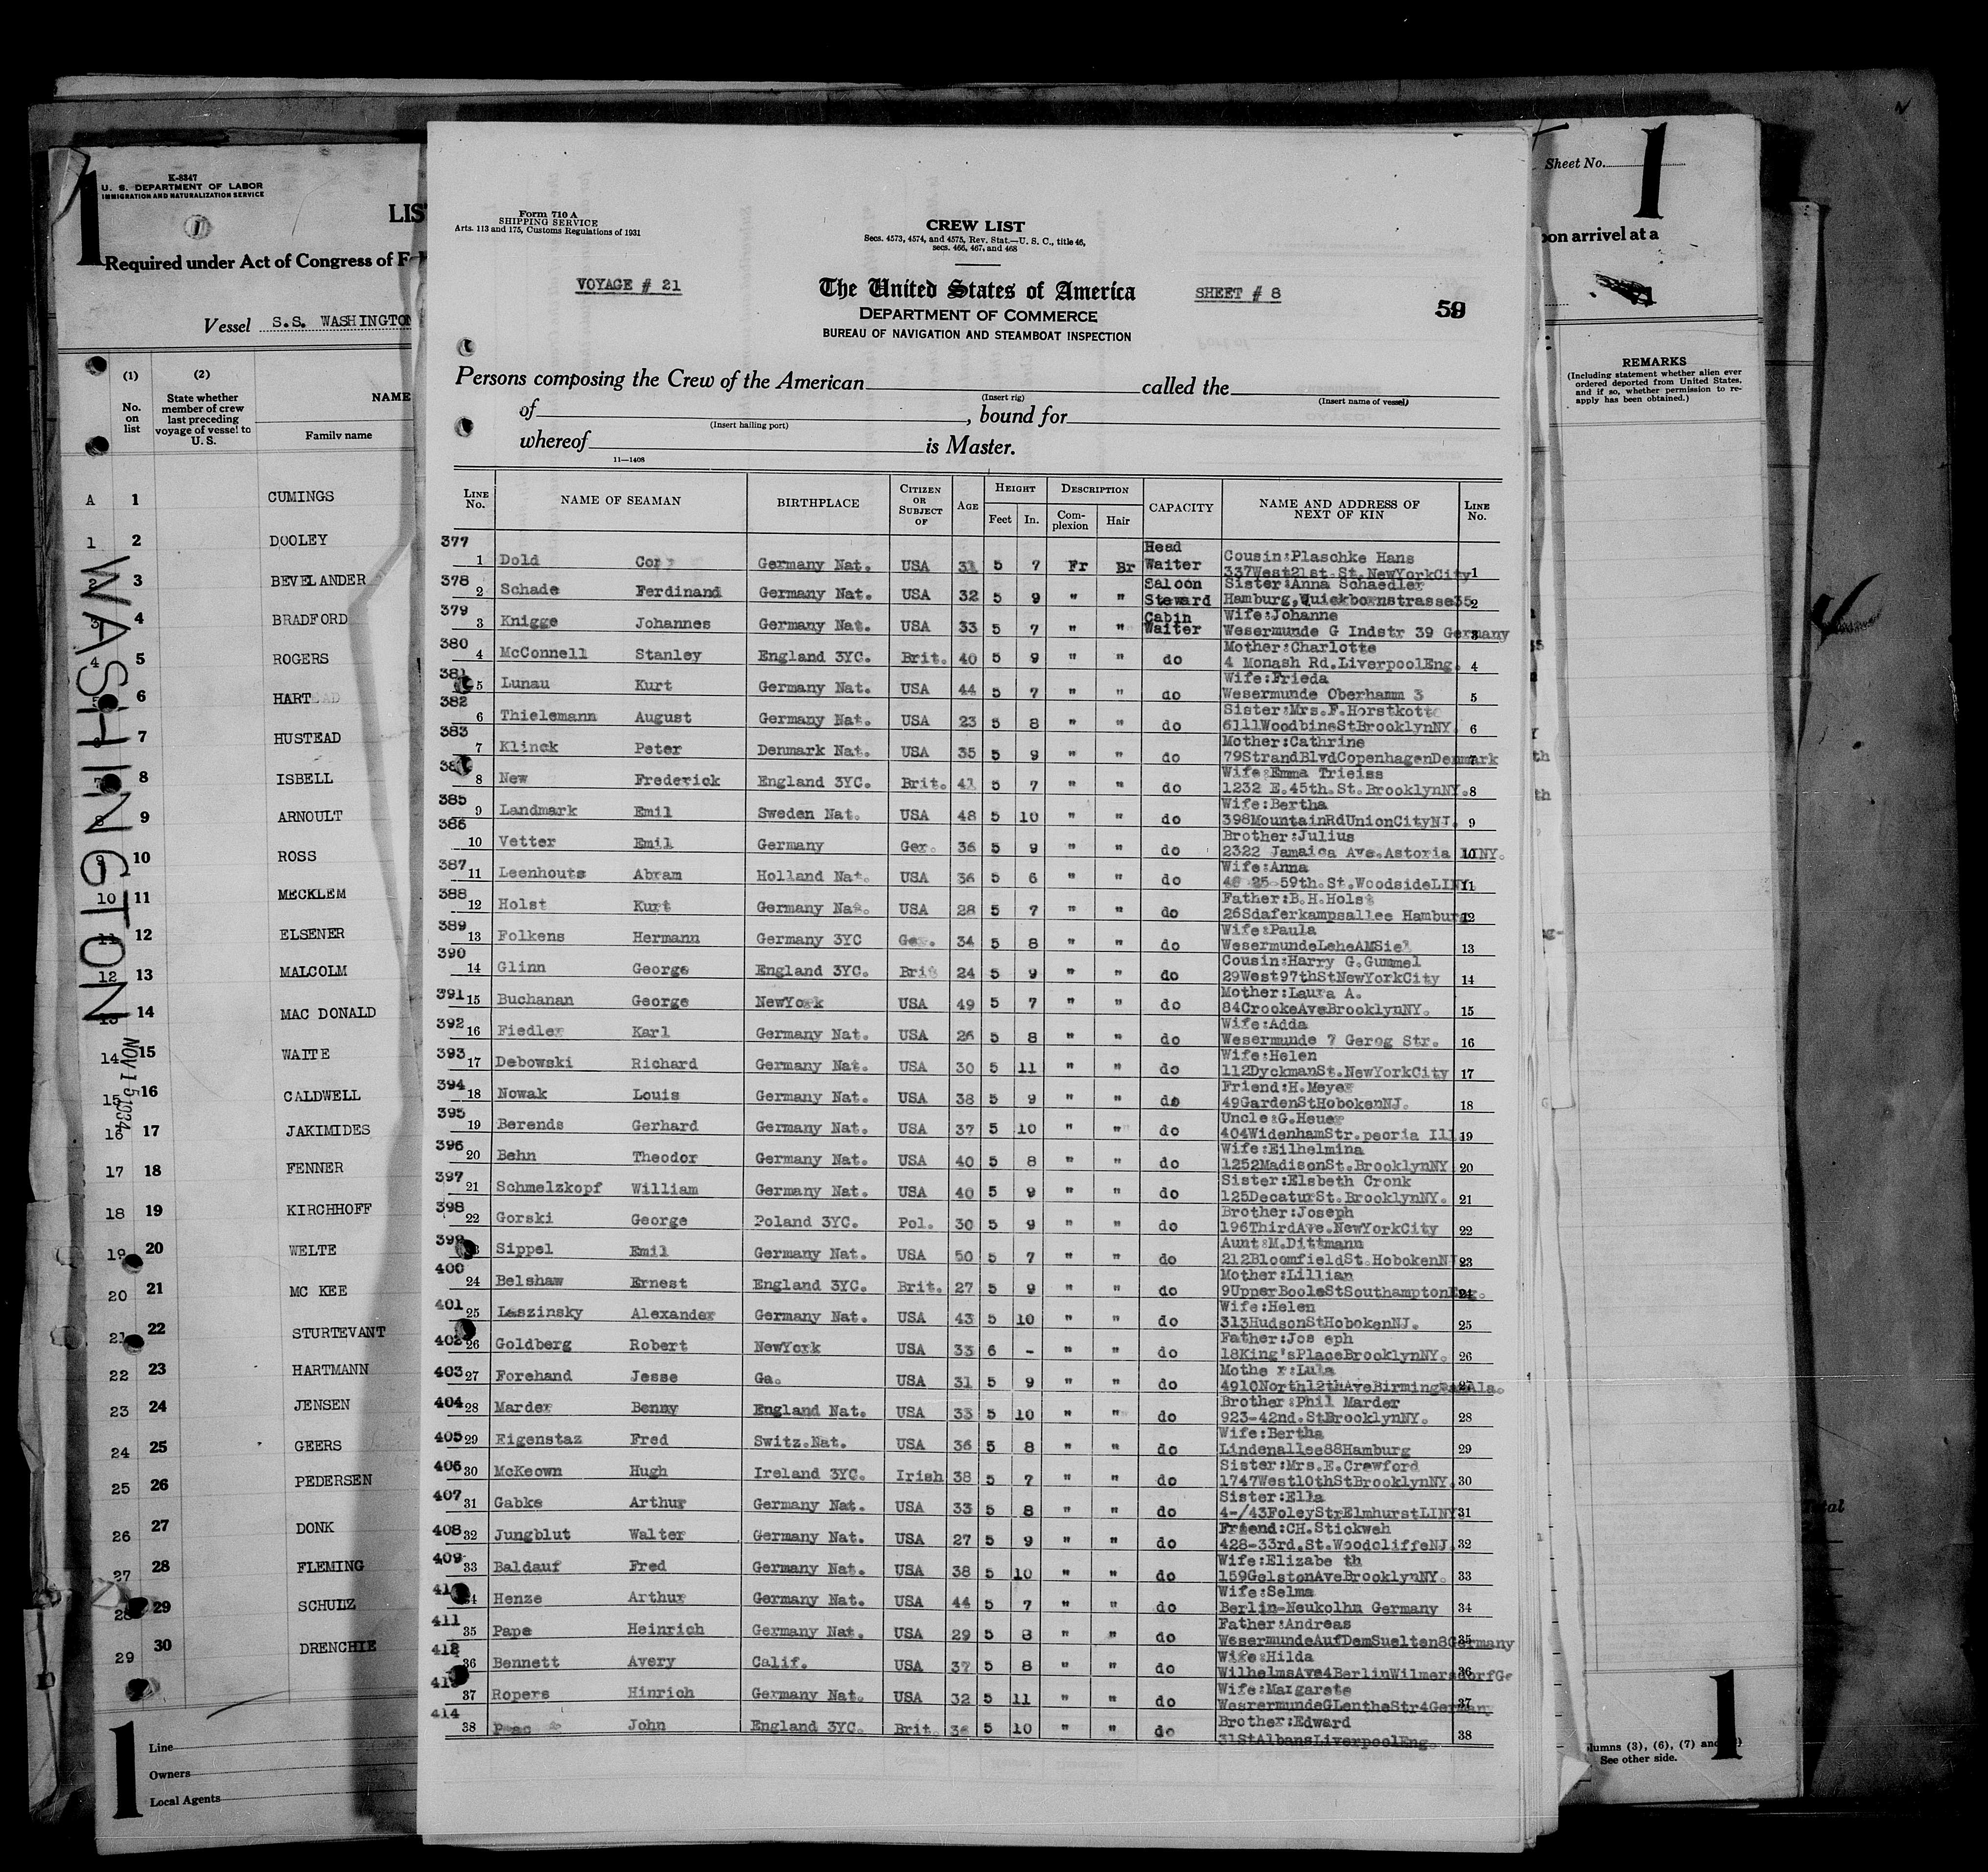 K-8347
U. S. DEPARTMENT OF LABOR
IMMIGRATION AND NATURALIZATION SERVICE
1
1
LIS
Required under Act of Congress of F
Vessel S.S. WASHINGTON
(1) (2)
No. on list
State whether member of crew last preceding voyage of vessel to U. S.
NAME
Family name
A 1 CUMINGS
1 2 DOOLEY
2 3 BEVELANDER
3 4 BRADFORD
4 5 ROGERS
5 6 HART
6 7 HUSTEAD
7 8 ISBELL
8 9 ARNOULT
9 10 ROSS
10 11 MECKLEM
11 12 ELSENER
12 13 MALCOLM
13 14 MAC DONALD
14 15 WAITE
15 16 CALDWELL
16 17 JAKIMIDES
17 18 FENNER
18 19 KIRCHHOFF
19 20 WELTE
20 21 MC KEE
21 22 STURTEVANT
22 23 HARTMANN
23 24 JENSEN
24 25 GEERS
25 26 PEDERSEN
26 27 DONK
27 28 FLEMING
28 29 SCHULZ
29 30 DRENCHIE
WASHINGTON
NOV 15 1934
1
Line
Owners
Local Agents
Form 710 A
SHIPPING SERVICE
Arts. 113 and 175, Customs Regulations of 1931
CREW LIST
Secs. 4573, 4574, and 4575, Rev. Stat.—U. S. C., title 46,
secs. 466, 467, and 468
VOYAGE # 21
The United States of America
SHEET # 8
59
DEPARTMENT OF COMMERCE
BUREAU OF NAVIGATION AND STEAMBOAT INSPECTION
Persons composing the Crew of the American called the
(Insert rig) (Insert name of vessel)
of , bound for
(Insert hailing port)
whereof is Master.
11—1408
LINE No. NAME OF SEAMAN BIRTHPLACE CITIZEN OR SUBJECT OF AGE HEIGHT Feet In. DESCRIPTION Complexion Hair CAPACITY NAME AND ADDRESS OF NEXT OF KIN LINE No.
377 Head Cousin:Plaschke Hans
1 Dold Germany Nat. USA 31 5 7 Fr Br Waiter 337West21st.St.NewYorkCity 1
378 Saloon Sister:Anna Schaedler
2 Schade Ferdinand Germany Nat. USA 32 5 9 " " Steward Hamburg,Quickbornstrasse35 2
379 Cabin Wife:Johanne
3 Knigge Johannes Germany Nat. USA 33 5 7 " " Waiter Wesermunde G Indstr 39 Germany 3
380 Mother:Charlotte
4 McConnell Stanley England 3YC. Brit. 40 5 9 " " do 4 Monash Rd.LiverpoolEng. 4
381 Wife:Frieda
5 Lunau Kurt Germany Nat. USA 44 5 7 " " do Wesermunde Oberhamm 3 5
382 Sister:Mrs.F.Horstkotte
6 Thielemann August Germany Nat. USA 23 5 8 " " do 6111WoodbineStBrooklynNY. 6
383 Mother:Cathrine
7 Klinck Peter Denmark Nat. USA 35 5 9 " " do 79StrandBlvdCopenhagenDenmark 7
Wife:Emma Trieiss
8 New Frederick England 3YC. Brit. 41 5 7 " " do 1232 E.45th.St.BrooklynNY. 8
385 Wife:Bertha
9 Landmark Emil Sweden Nat. USA 48 5 10 " " do 398MountainRdUnionCityNJ. 9
386 Brother:Julius
10 Vetter Emil Germany Ger. 36 5 9 " " do 2322 Jamaica Ave.Astoria LINY. 10
387 Wife:Anna
11 Leenhouts Abram Holland Nat. USA 36 5 6 " " do 25-59th.St.WoodsideLINY 11
388 Father:B.H.Holst
12 Holst Kurt Germany Nat. USA 28 5 7 " " do 26Sdaferkampsallee Hamburg 12
389 Wife:Paula
13 Folkens Hermann Germany 3YC Ger. 34 5 8 " " do WesermundeLeheAMSiel 13
390 Cousin:Harry G.Gummel
14 Glinn George England 3YC. Brit 24 5 9 " " do 29West97thStNewYorkCity 14
391 Mother:Laura A.
15 Buchanan George NewYork USA 49 5 7 " " do 84CrookeAveBrooklynNY. 15
392 Wife:Adda
16 Fiedler Karl Germany Nat. USA 26 5 8 " " do Wesermunde 7 Gerog Str. 16
393 Wife:Helen
17 Debowski Richard Germany Nat. USA 30 5 11 " " do 112DyckmanSt.NewYorkCity 17
394 Friend:H.Meyer
18 Nowak Louis Germany Nat. USA 38 5 9 " " do 49GardenStHobokenNJ. 18
395 Uncle:G.Heuer
19 Berends Gerhard Germany Nat. USA 37 5 10 " " do 404WidenhamStr.peoria Ill. 19
396 Wife:Eilhelmina
20 Behn Theodor Germany Nat. USA 40 5 8 " " do 1252MadisonSt.BrooklynNY 20
397 Sister:Elsbeth Cronk
21 Schmelzkopf William Germany Nat. USA 40 5 9 " " do 125DecaturSt.BrooklynNY. 21
398 Brother:Joseph
22 Gorski George Poland 3YC. Pol. 30 5 9 " " do 196ThirdAve.NewYorkCity 22
399 Aunt:M.Dittmann
Sippel Emil Germany Nat. USA 50 5 7 " " do 212BloomfieldSt.HobokenNJ 23
400 Mother:Lillian
24 Belshaw Ernest England 3YC. Brit. 27 5 9 " " do 9UpperBooleStSouthamptonEng. 24
401 Wife:Helen
25 Laszinsky Alexander Germany Nat. USA 43 5 10 " " do 313HudsonStHobokenNJ. 25
402 Father:Jos eph
26 Goldberg Robert NewYork USA 33 6 - " " do 18King'sPlaceBrooklynNY. 26
403 Mothe r:Lula
27 Forehand Jesse Ga. USA 31 5 9 " " do 4910North12thAveBirminghamAla. 27
404 Brother:Phil Marder
28 Marder Benny England Nat. USA 33 5 10 " " do 923-42nd.StBrooklynNY. 28
405 Wife:Bertha
29 Eigenstaz Fred Switz.Nat. USA 36 5 8 " " do Lindenallee88Hamburg 29
406 Sister:Mrs.E.Crewford
30 McKeown Hugh Ireland 3YC. Irish 38 5 7 " " do 1747West10thStBrooklynNY. 30
407 Sister:Ella
31 Gabke Arthur Germany Nat. USA 33 5 8 " " do 4-/43FoleyStrElmhurstLINY 31
408 Friend:CH.Stickweh
32 Jungblut Walter Germany Nat. USA 27 5 9 " " do 428-33rd.St.WoodcliffeNJ. 32
409 Wife:Elizabe th
33 Baldauf Fred Germany Nat. USA 38 5 10 " " do 159GelstonAveBrooklynNY. 33
Wife:Selma
Henze Arthur Germany Nat. USA 44 5 7 " " do Berlin-Neukolhn Germany 34
411 Father:Andreas
35 Pape Heinrich Germany Nat. USA 29 5 8 " " do WesermundeAufDemSuelten8Germany 35
412 Wife:Hilda
36 Bennett Avery Calif. USA 37 5 8 " " do WilhelmsAve4BerlinWilmersdorfGe 36
Wife:Margarete
37 Ropers Hinrich Germany Nat. USA 32 5 11 " " do WesrermundeGLentheStr4Germany 37
414 Brother:Edward
38 John England 3YC. Brit. 36 5 10 " " do 31StAlbansLiverpoolEng. 38
Sheet No.
1
pon arrival at a
REMARKS
(Including statement whether alien ever ordered deported from United States, and if so, whether permission to reapply has been obtained.)
Total
lumns (3), (6), (7) and
See other side.
1